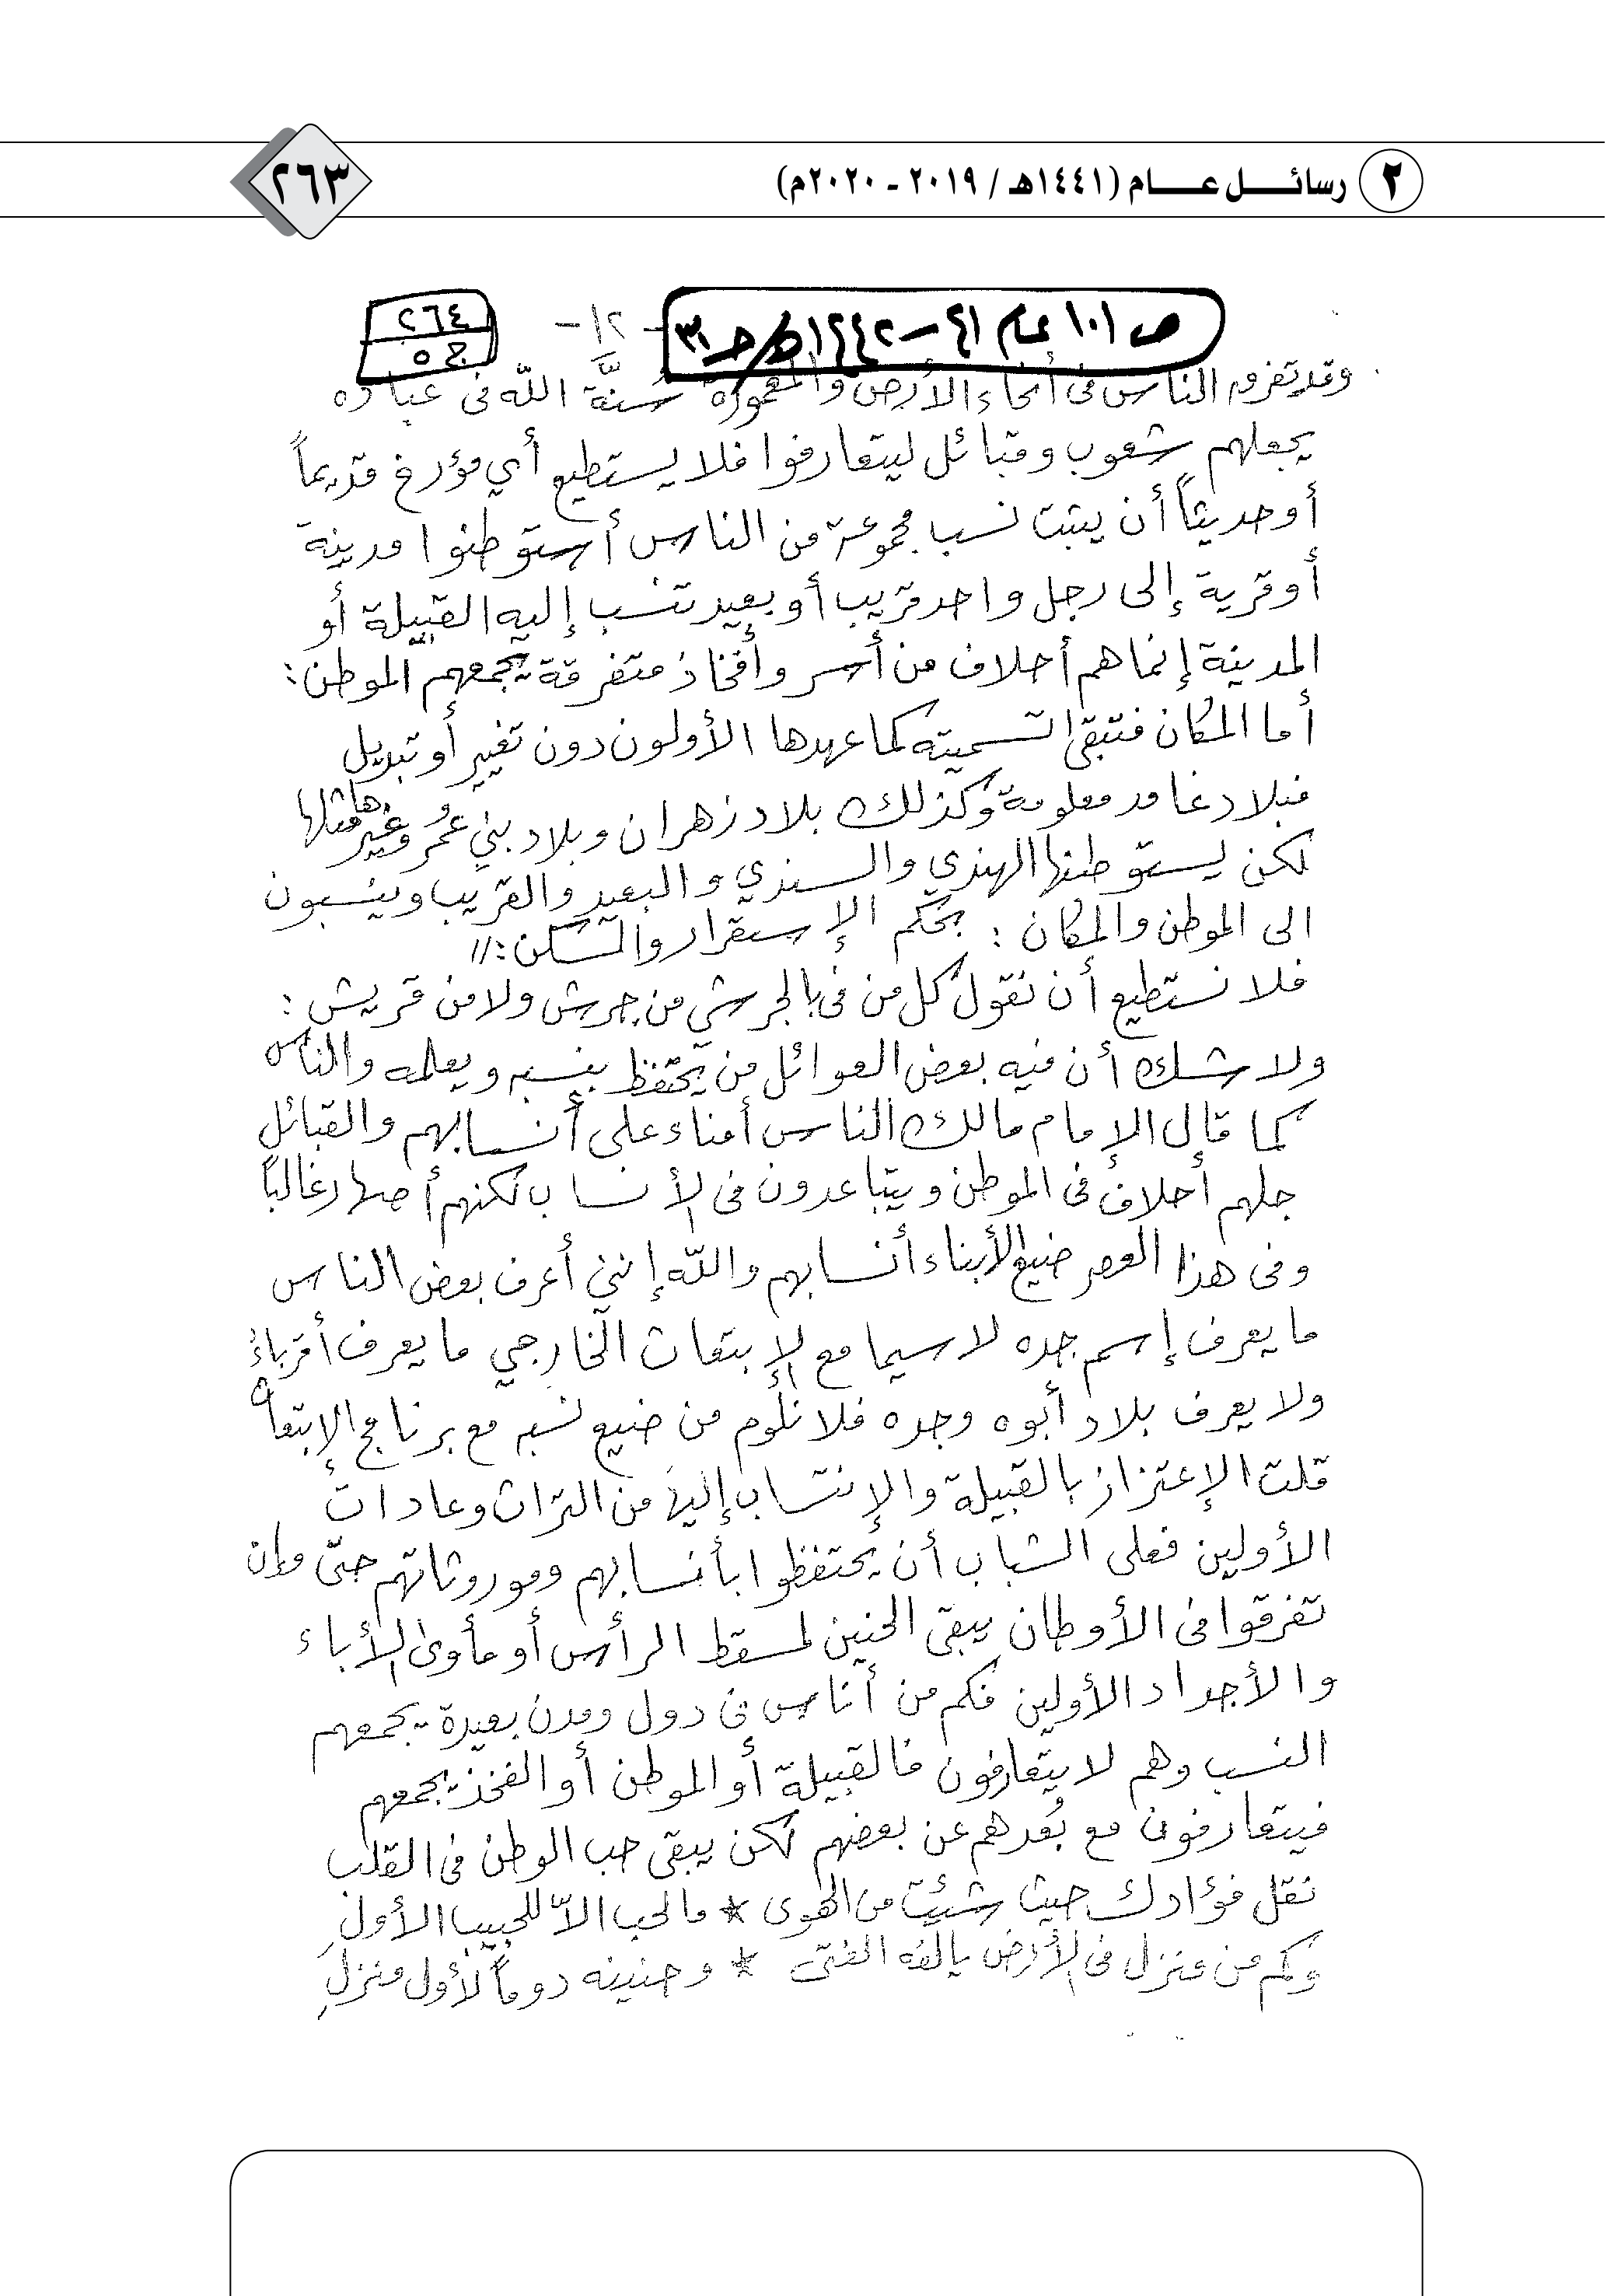 ٢ رسائل عام (١٤٤١هـ / ٢٠١٩ - ٢٠٢٠م)
٢٦٣
ص ١٠١ عام ٤١ - ١٤٤٢هـ / جـ ٣
- ١٢ -
٢٦٤
ج ٥
وقد تفرق الناس في أنحاء الأرض والمعمورة سنَّة اللّه في عباده
يجعلهم شعوب وقبائل ليتعارفوا فلا يستطيع أي مؤرخ قديماً
أو حديثاً أن يثبت نسب مجموعة من الناس أستوطنوا مدينة
أو قرية إلى رجل واحد قريب أو بعيد تنسب إليه القبيلة أو
المدينة إنما هم أحلاف من أسر وأفخاذ متفرقة يجمعهم الموطن :
أما المكان فتبقى تسميته كما عهدها الأولون دون تغيير أو تبديل
فبلاد غامد معلومة وكذلك بلاد زهران وبلاد بني عُمر وغيرها مثلها
لكن يستوطنها الهندي والسندي والبعيد والقريب وينسبون
الى الموطن والمكان : بحكم الإستقرار والسكن : //
فلا نستطيع أن نقول كل من في بالجرشي من جرش ولا من قريش :
ولا شك أن فيه بعض العوائل من يحتفظ بنسبه ويعلمه والناس
كما قال الإمام مالك الناس أمناء على أنسابهم والقبائل
جلهم أحلاف في الموطن ويتباعدون في الأنساب لكنهم أصهار غالباً
وفي هذا العصر ضيع الأبناء أنسابهم واللّه إنني أعرف بعض الناس
ما يعرف إسم جده لا سيما مع الإبتعاث الخارجي ما يعرف أقرباءه
ولا يعرف بلاد أبوه وجده فلا نلوم من ضيع نسبه مع برنامج الإبتعاث
قلت الإعتزاز بالقبيلة والإنتساب إليها من التراث وعادات
الأولين فعلى الشباب أن يحتفظوا بأنسابهم وموروثاتهم حتّى وإن
تفرقوا في الأوطان يبقى الحنين لمسقط الرأس أو مأوى الأباء
والأجداد الأولين فكم من أناس في دول ومدن بعيدة يجمعهم
النسب وهم لا يتعارفون فالقبيلة أو الموطن أو الفخذ يجمعهم
فيتعارفون مع بُعدهم عن بعضهم لكن يبقى حب الوطن في القلب
نقل فؤادك حيث شئت من الهوى * ما لحب الاّ للحبيب الأولِ
وكم من منزل في الأرض يألفه الفتى * وحنينه دوماً لأول منزلِ